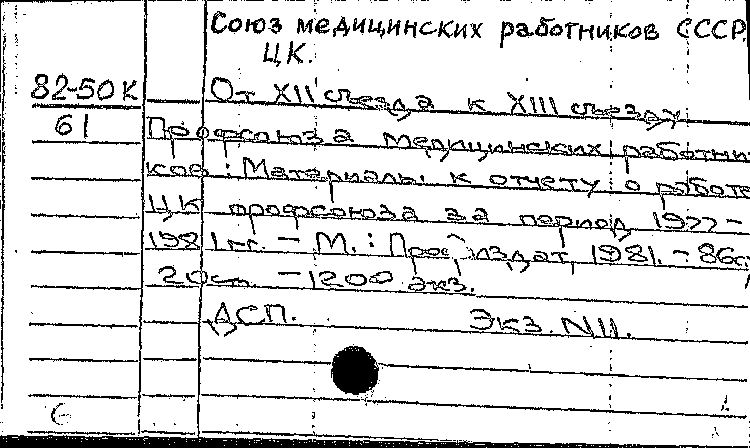 Союз медицинских работников СССР.
ЦК.
82-50К От XII съезда к XIII съезду
61 Профсоюза медицинских работни-
ков: Материалы к отчету о работе
ЦК профсоюза за период 1977-
1981 гг. - М.: Профиздат, 1981. - 86с;
20см. - 1200 экз.
ДСП. Экз. N11.